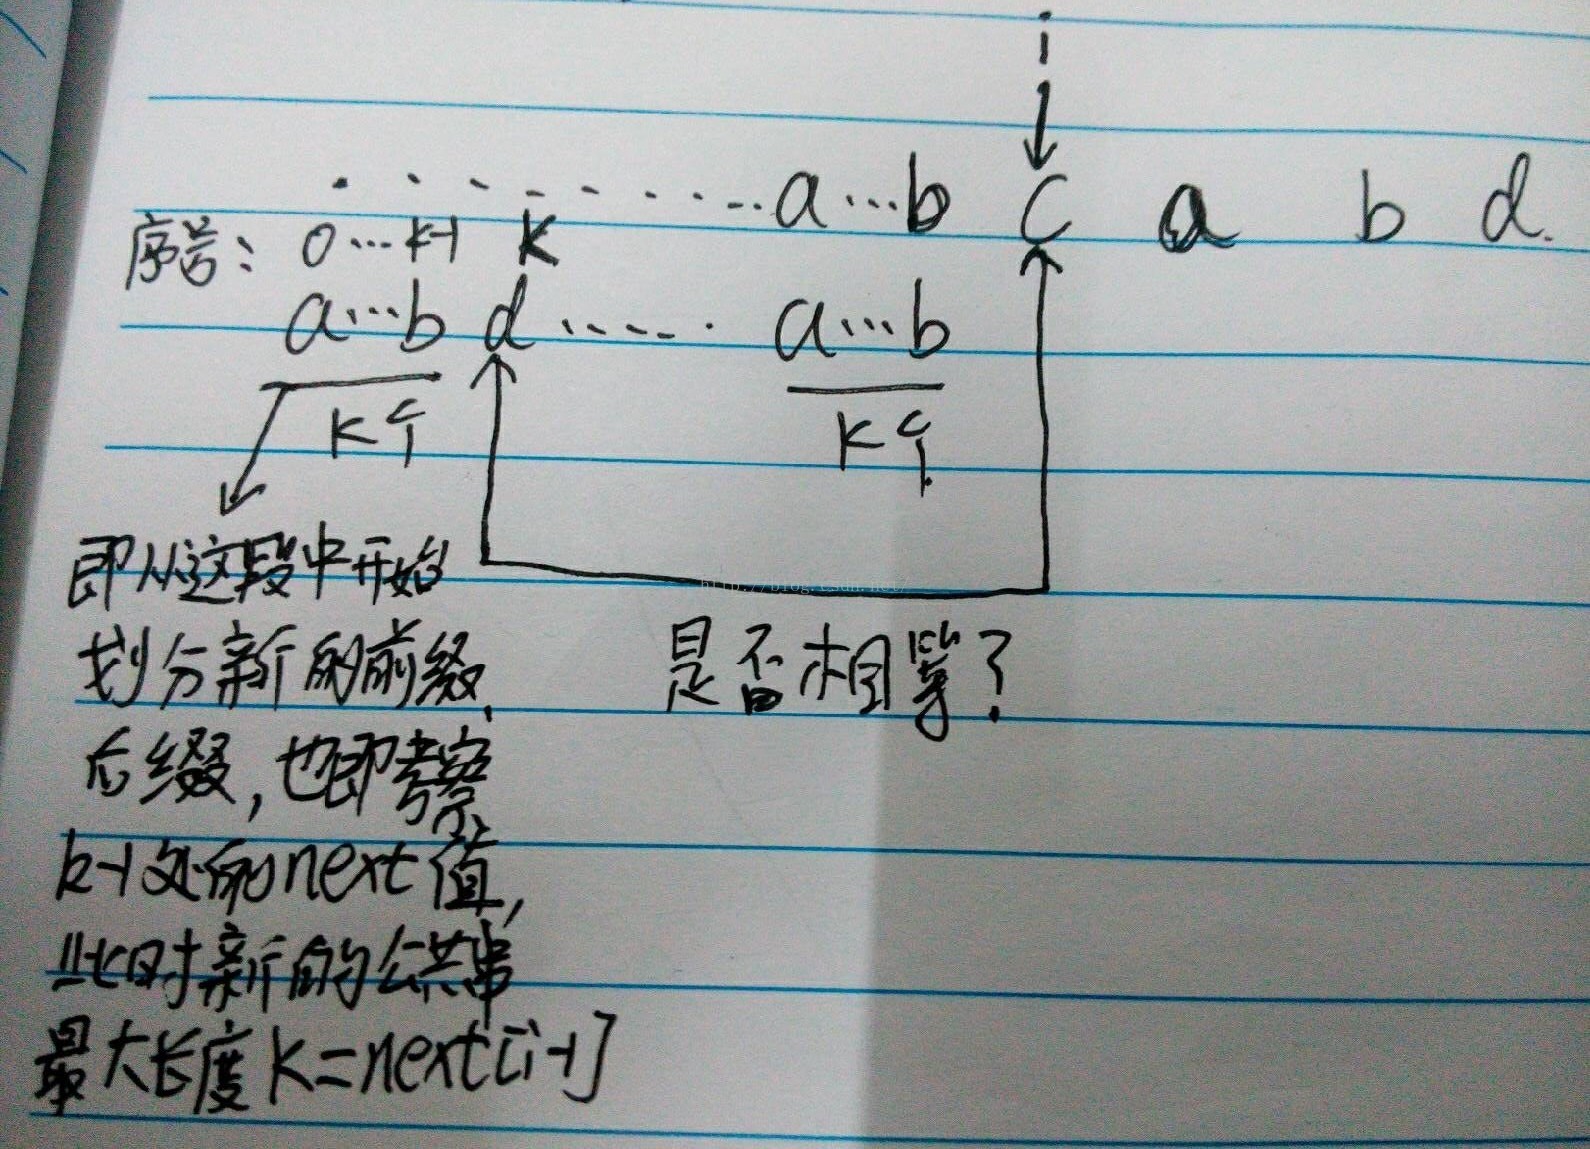 a...b c a b d.
序号: 0...k-1 k
a...b d ...... a...b
k个 k个
即从这段中开始
划分新的前缀、
后缀,也即考察
k-1处的next值,
此时新的公共串
最大长度k=next[i-1]
是否相等?
http://blog.csdn.net/